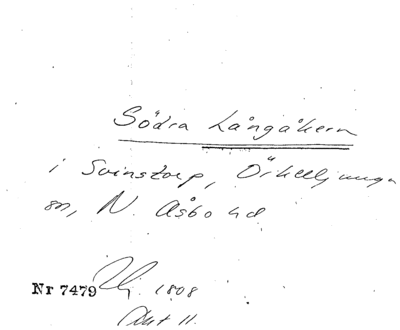 Södra Långåkern
i Svinstorp, Örkelljunga
sn, N. Åsbo hd
Nr 7479 1808
Akt 11.